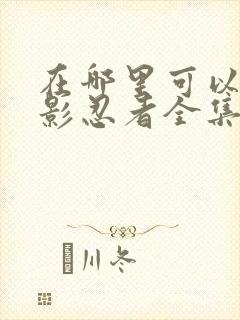 在哪里可以
影忍者全集
川冬